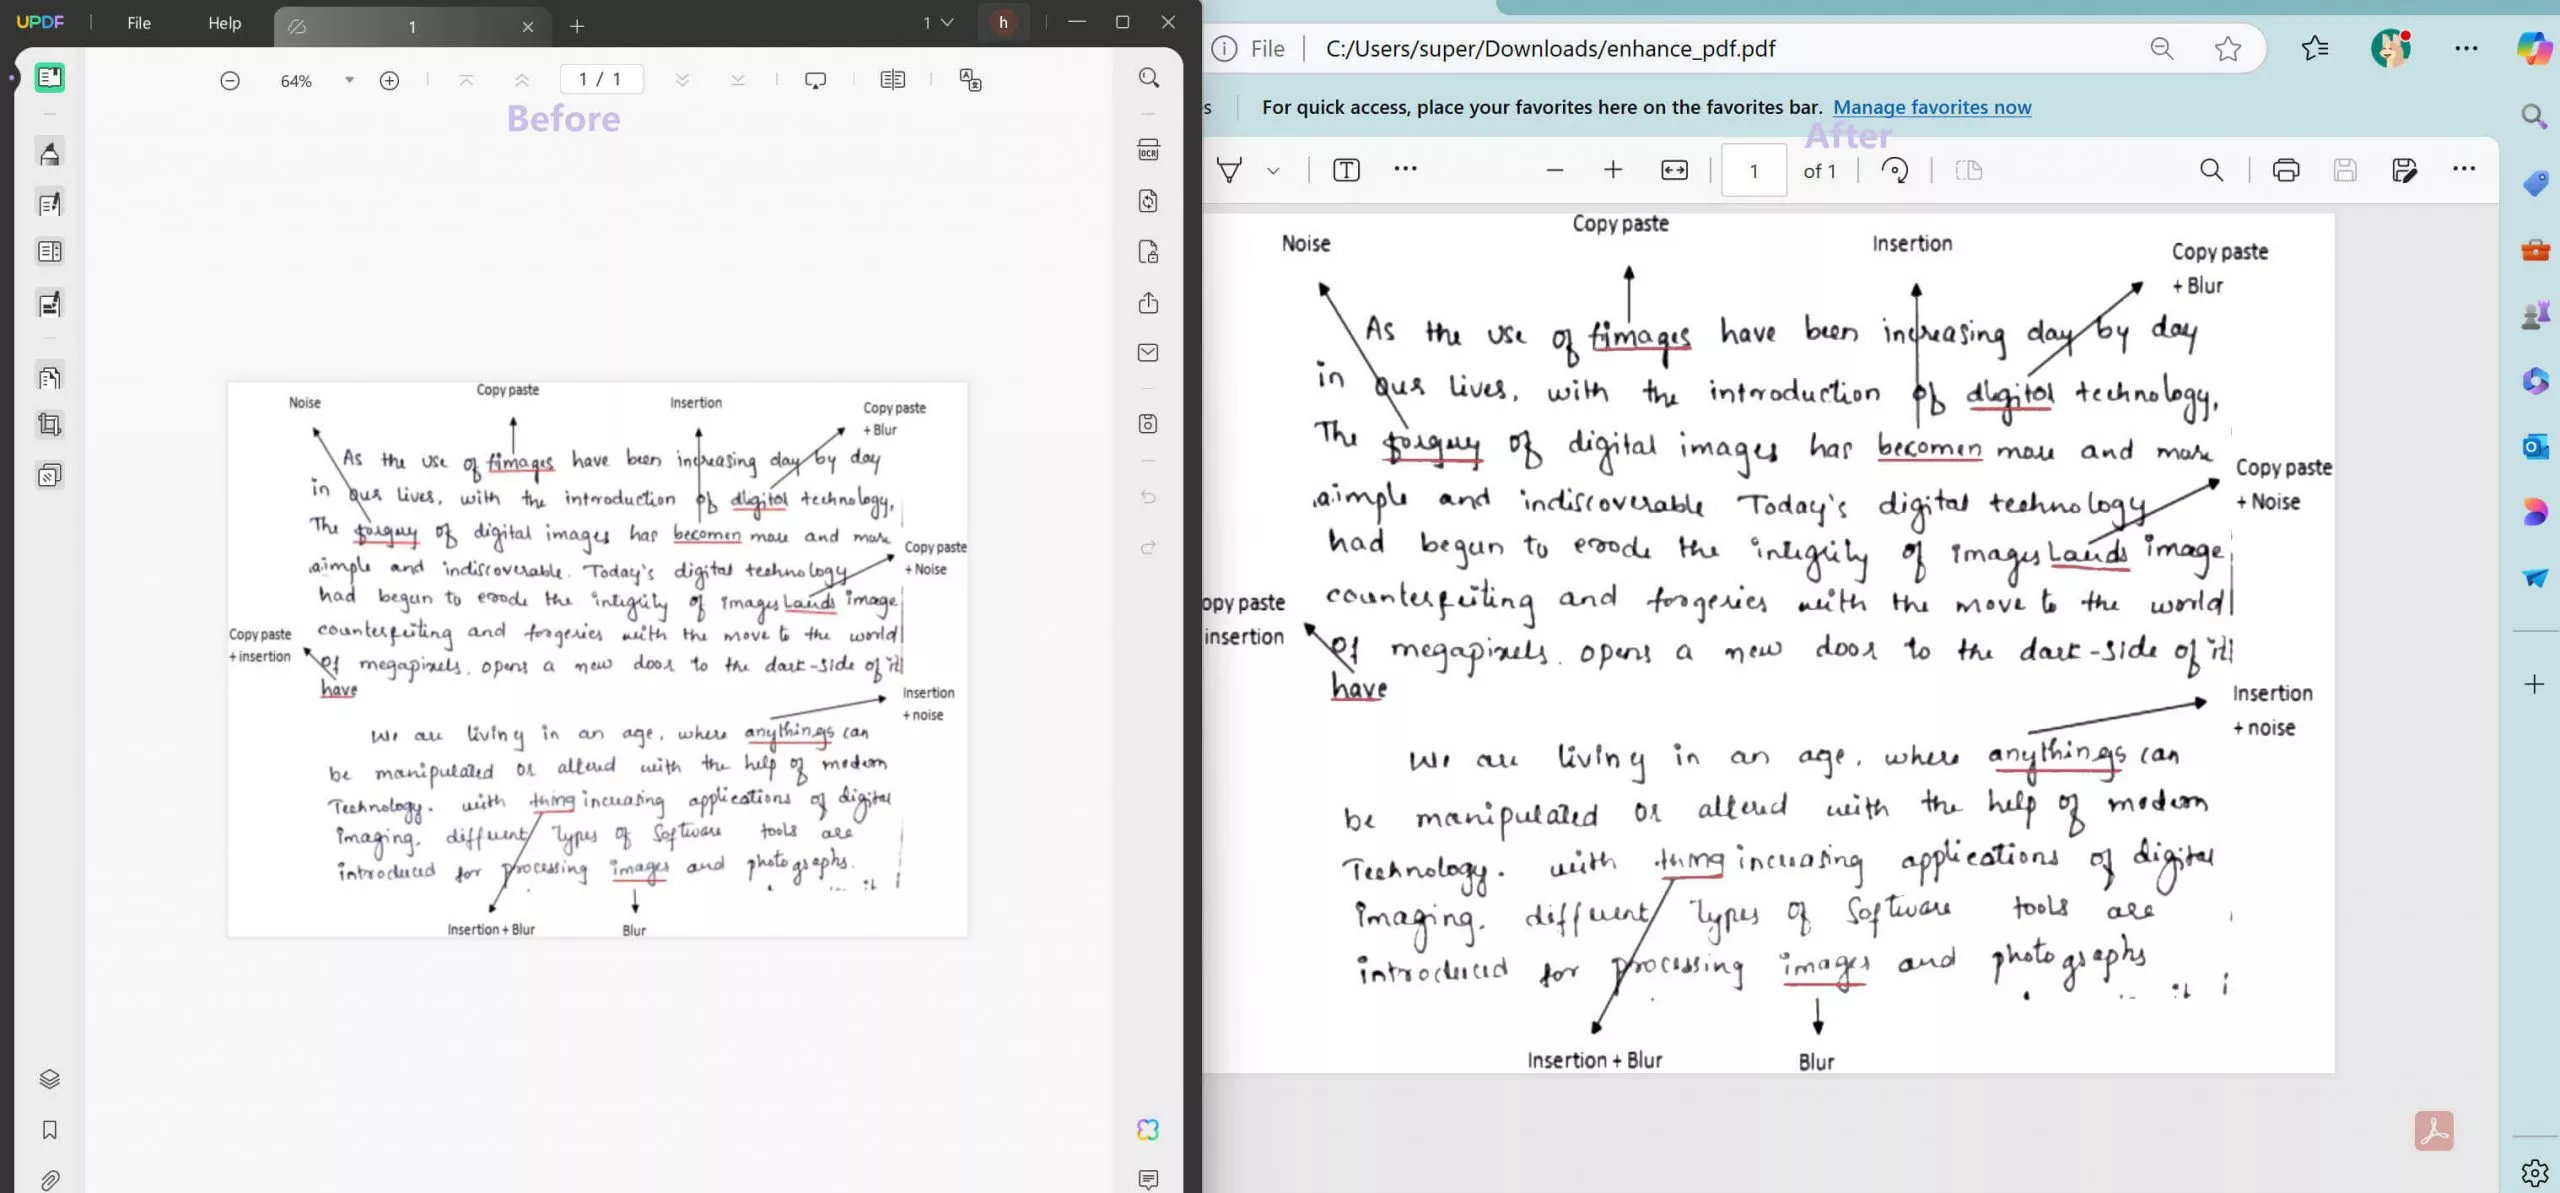 UPDF File Help 1 1 h
64% 1 / 1
Before
OCR
Noise
Copy paste
Insertion
Copy paste
+ Blur
As the use of fimages have been increasing day by day
in our lives, with the introduction of digitol technology,
The forguy of digital images has becomen more and more
Copy paste
+ Noise
aimple and indiscoverable. Today's digital technology
had begun to erode the integrity of images Lands image
counterfeiting and forgeries with the move to the world
Copy paste
+ insertion
of megapixels. opens a new door to the dark-side of it
have
Insertion
+ noise
We are living in an age, where anythings can
be manipulated or altered with the help of modern
Technology. with thing increasing applications of digital
imaging, different types of Software tools are
introduced for processing images and photographs.
Insertion + Blur
Blur
File C:/Users/super/Downloads/enhance_pdf.pdf
s For quick access, place your favorites here on the favorites bar. Manage favorites now
After
T 1 of 1
Noise
Copy paste
Insertion
Copy paste
+ Blur
As the use of fimages have been increasing day by day
in our lives, with the introduction of digitol technology,
The forguy of digital images has becomen more and more
Copy paste
+ Noise
aimple and indiscoverable Today's digital technology
had begun to erode the integrity of images Lands image
counterfeiting and forgeries with the move to the world
opy paste
insertion
of megapixels. opens a new door to the dark-side of it
have
Insertion
+ noise
We are living in an age, where anythings can
be manipulated or altered with the help of modern
Technology. with thing increasing applications of digital
imaging, different types of Software tools are
introduced for processing images and photographs
Insertion + Blur
Blur